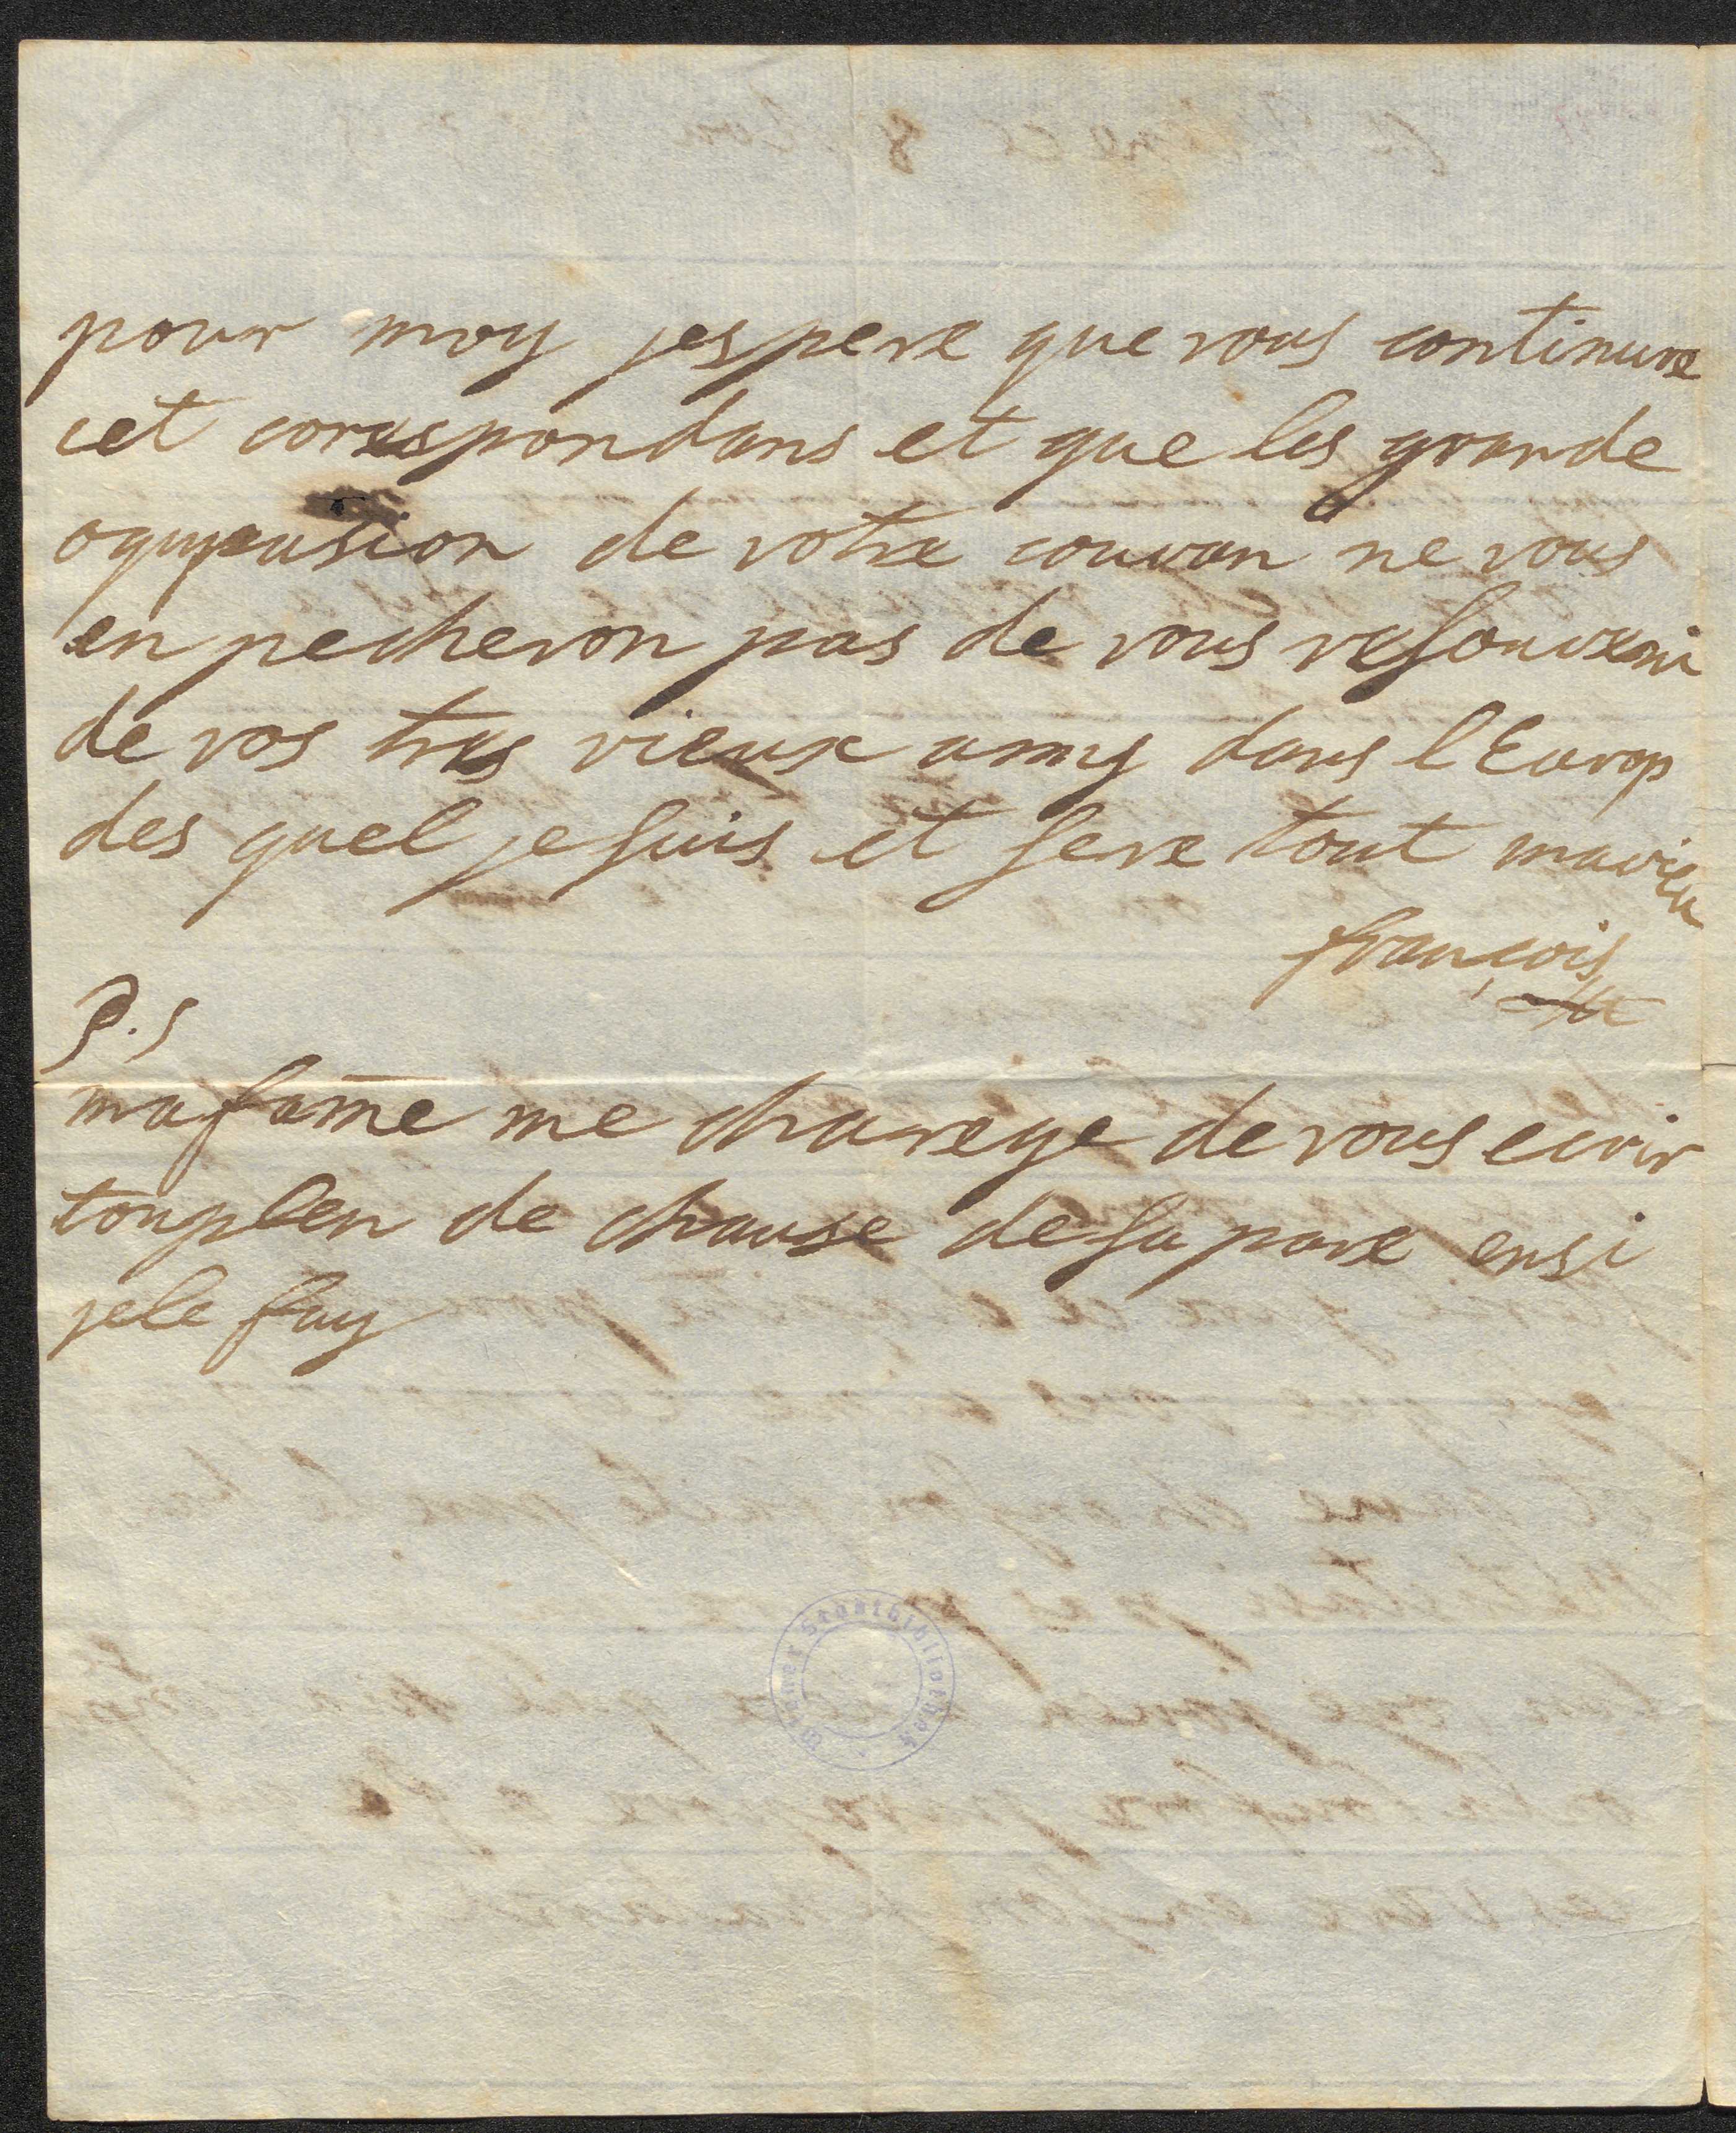 pour moy jespere que vous continure
cet corespondans et que les grande
oqupasion de votre couvan ne vous
en pecheron pas de vous resouveni
de vos tres vieux amy dans l'Europ
des quel je suis et sere tout mavieu
françois
P.S
ma fam̄e me charege de vous ecrir
touplen de chause de sa pare ensi
jele fay
Wiener Stadtbibliothek